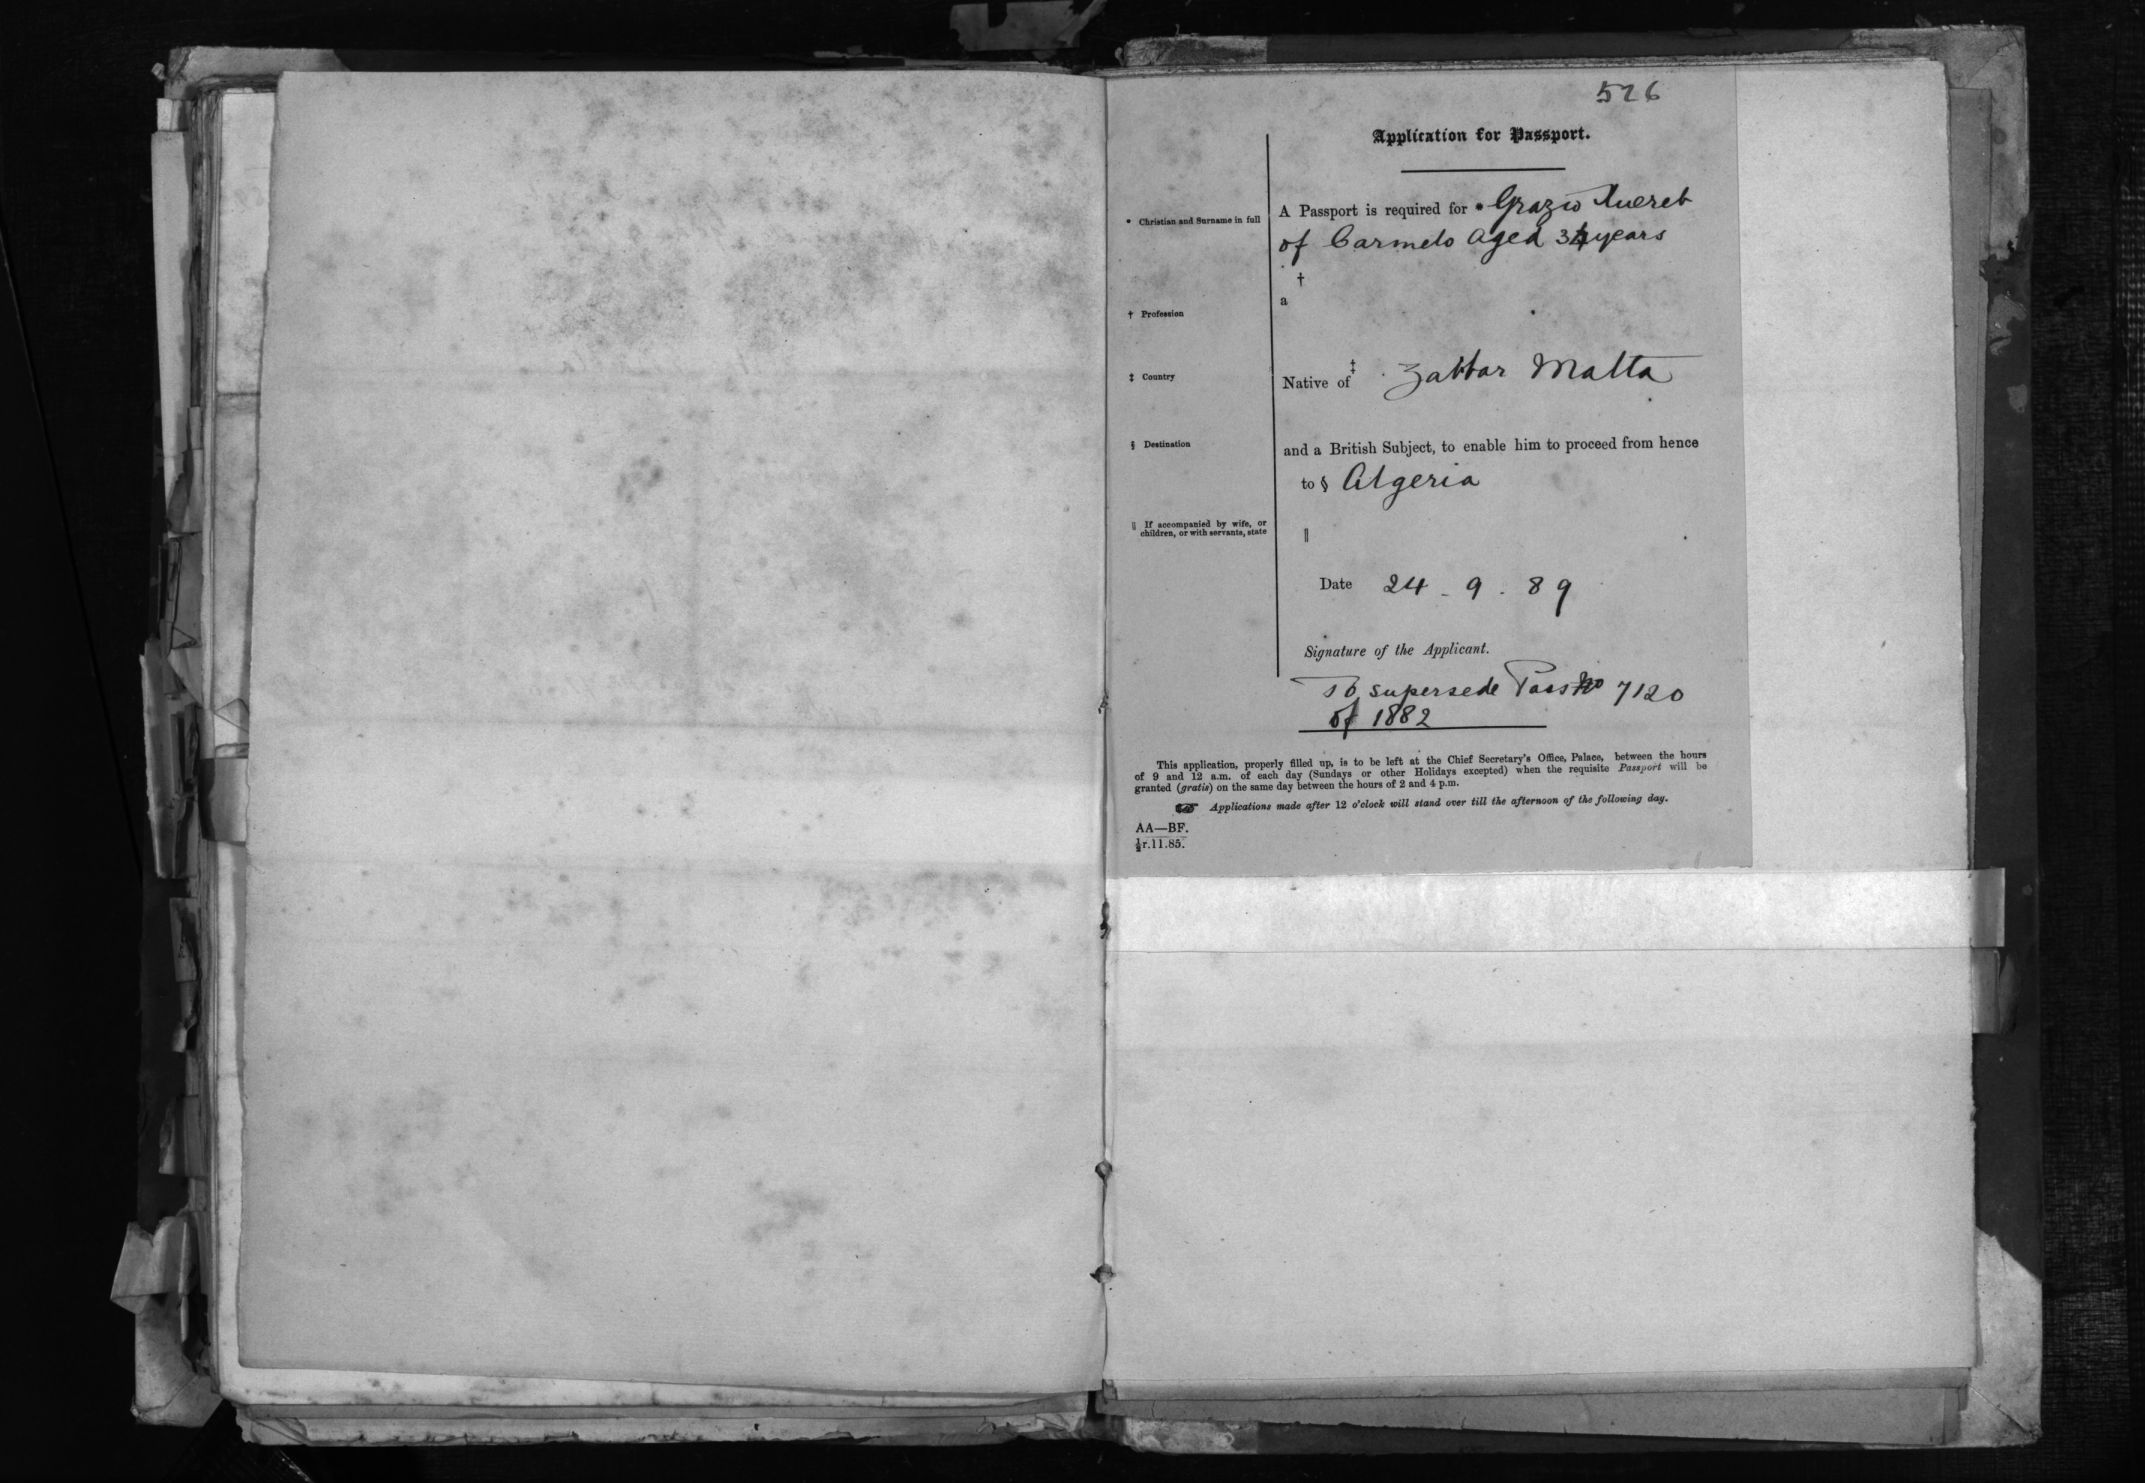 526
Application for Passport.
* Christian and Surname in full
A Passport is required for * Grazio Xuereb
of Carmelo aged 34 years
†
a
† Profession
‡ Country
Native of ‡ Zabbar Malta
§ Destination
and a British Subject, to enable him to proceed from hence
to § Algeria
|| If accompanied by wife, or
children, or with servants, state
||
Date 24 - 9 - 89
Signature of the Applicant.
To supersede Pass No 7120
of 1882
This application, properly filled up, is to be left at the Chief Secretary's Office, Palace, between the hours
of 9 and 12 a.m. of each day (Sundays or other Holidays excepted) when the requisite Passport will be
granted (gratis) on the same day between the hours of 2 and 4 p.m.
☞ Applications made after 12 o'clock will stand over till the afternoon of the following day.
AA—BF.
½r.11.85.